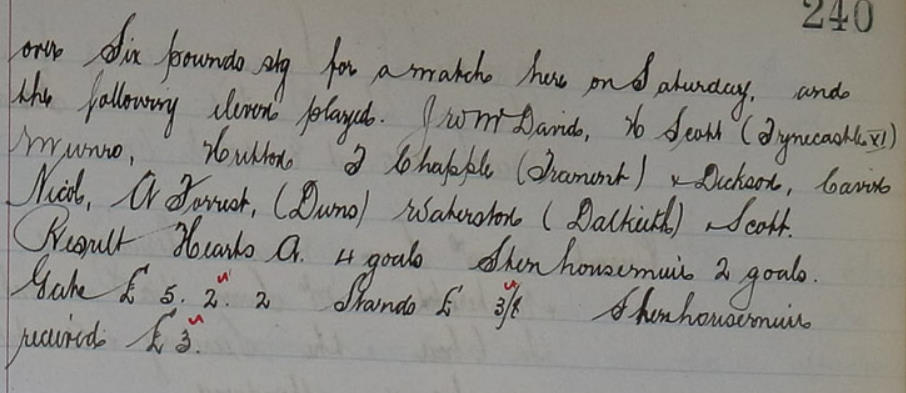 240
over Six pounds stg for a match here on Saturday, and
the following eleven played. J W McDavid, W Scott (Tynecastle XI)
Munro, Hutton J Chapple (Tranent) Dickson, Cairns
Nicol, A Forrest, (Duns) Waterston (Dalkeith) Scott.
Result Hearts A. 4 goals Stenhousemuir 2 goals.
Gate £ 5. 2. 2 Stands £ 3/8 Stenhousemuir
received £ 3.